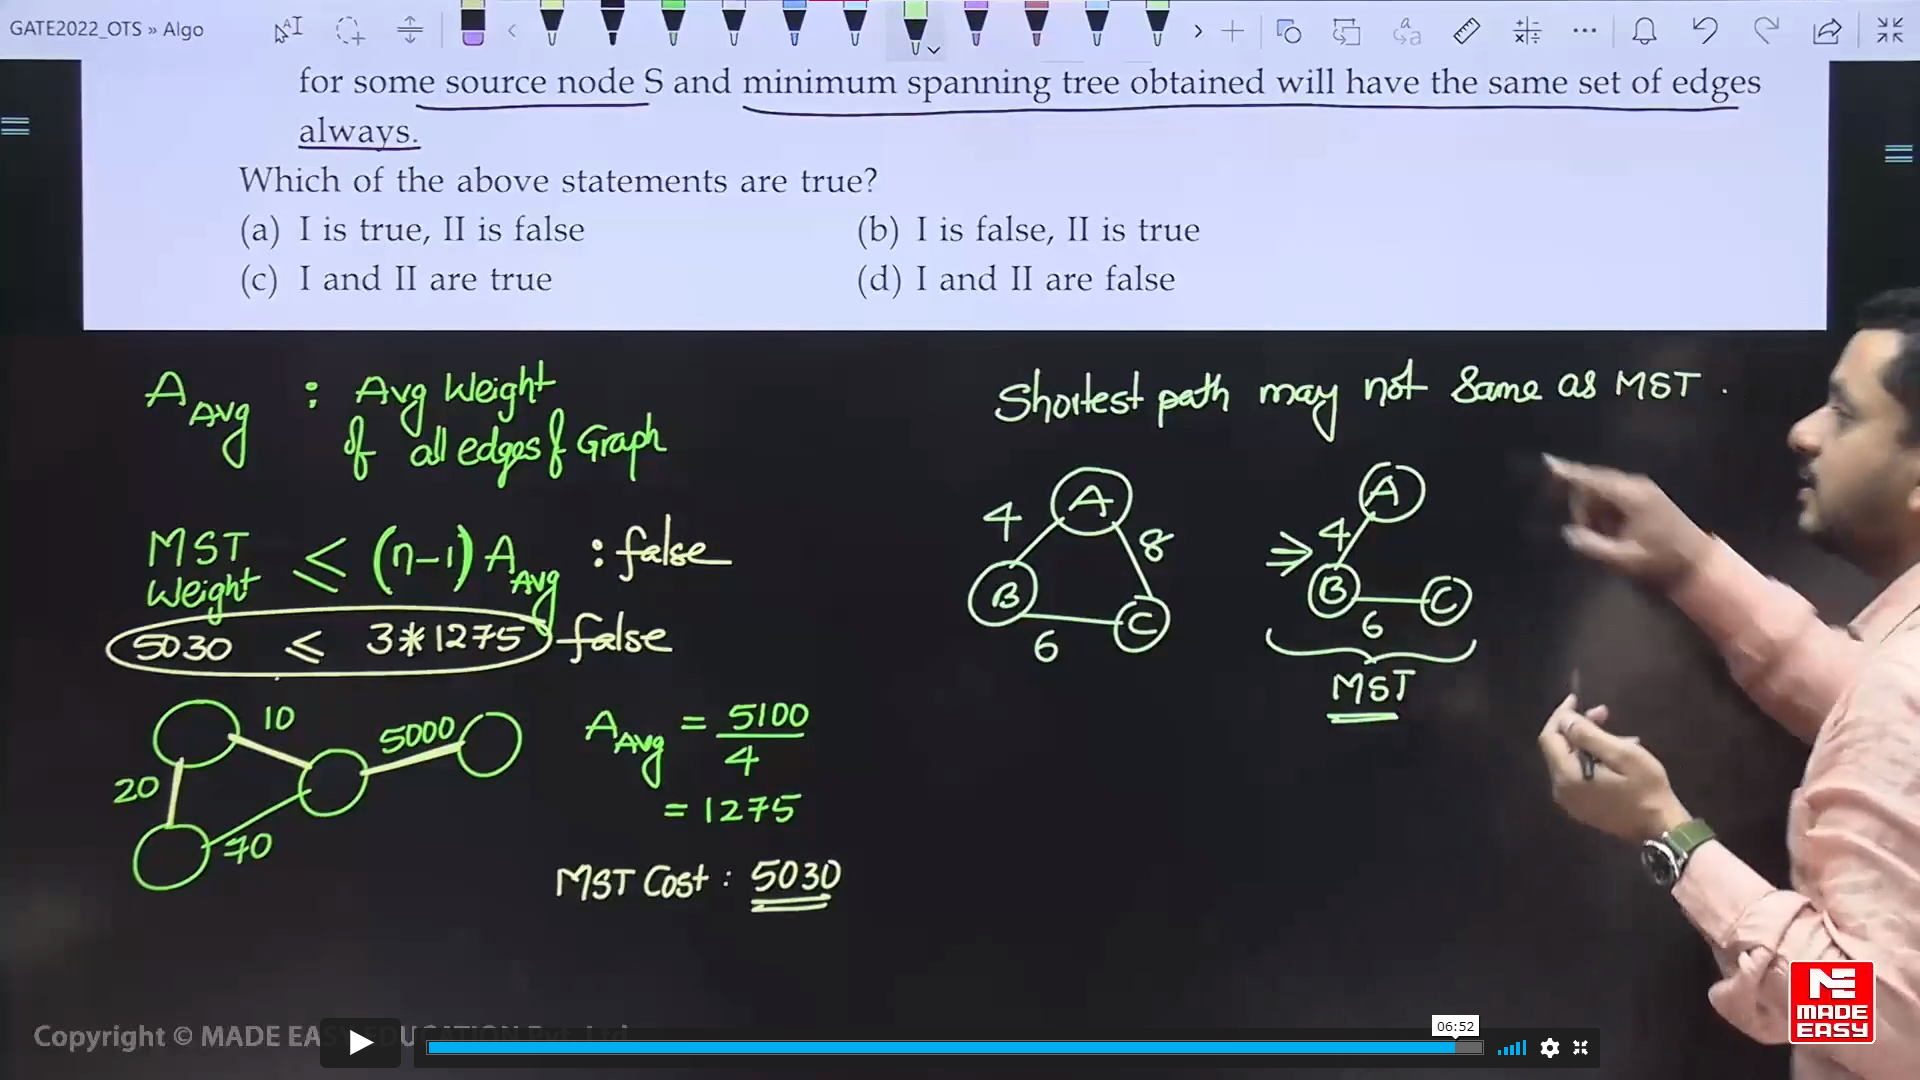 GATE2022_OTS » Algo
for some source node S and minimum spanning tree obtained will have the same set of edges
always.
Which of the above statements are true?
(a) I is true, II is false
(b) I is false, II is true
(c) I and II are true
(d) I and II are false
A Avg : Avg Weight
of all edges of Graph
MST Weight ≤ (n-1) A Avg : false
5030 ≤ 3*1275 false
10
5000
20
70
A Avg = 5100/4
= 1275
MST Cost : 5030
Shortest path may not same as MST.
A
4
8
B
C
6
⇒
A
4
B
C
6
MST
Copyright © MADE EASY EDUCATION Pvt. Ltd
06:52
ME
MADE
EASY